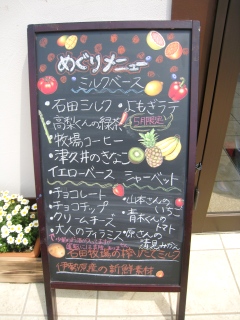 めぐりメニュー
ミルクベース
・石田ミルク
・よもぎラテ
5月限定!
・高梨くんの緑茶
・牧場コーヒー
・津久井のきなこ
イエローベース
・チョコレート
・チョコチップ
・クリームチーズ
・大人のティラミス
シャーベット
・山本さんのいちご
・青木くんのトマト
の
清見みかん
石田牧場の搾りたてミルク
伊勢原産の新鮮素材